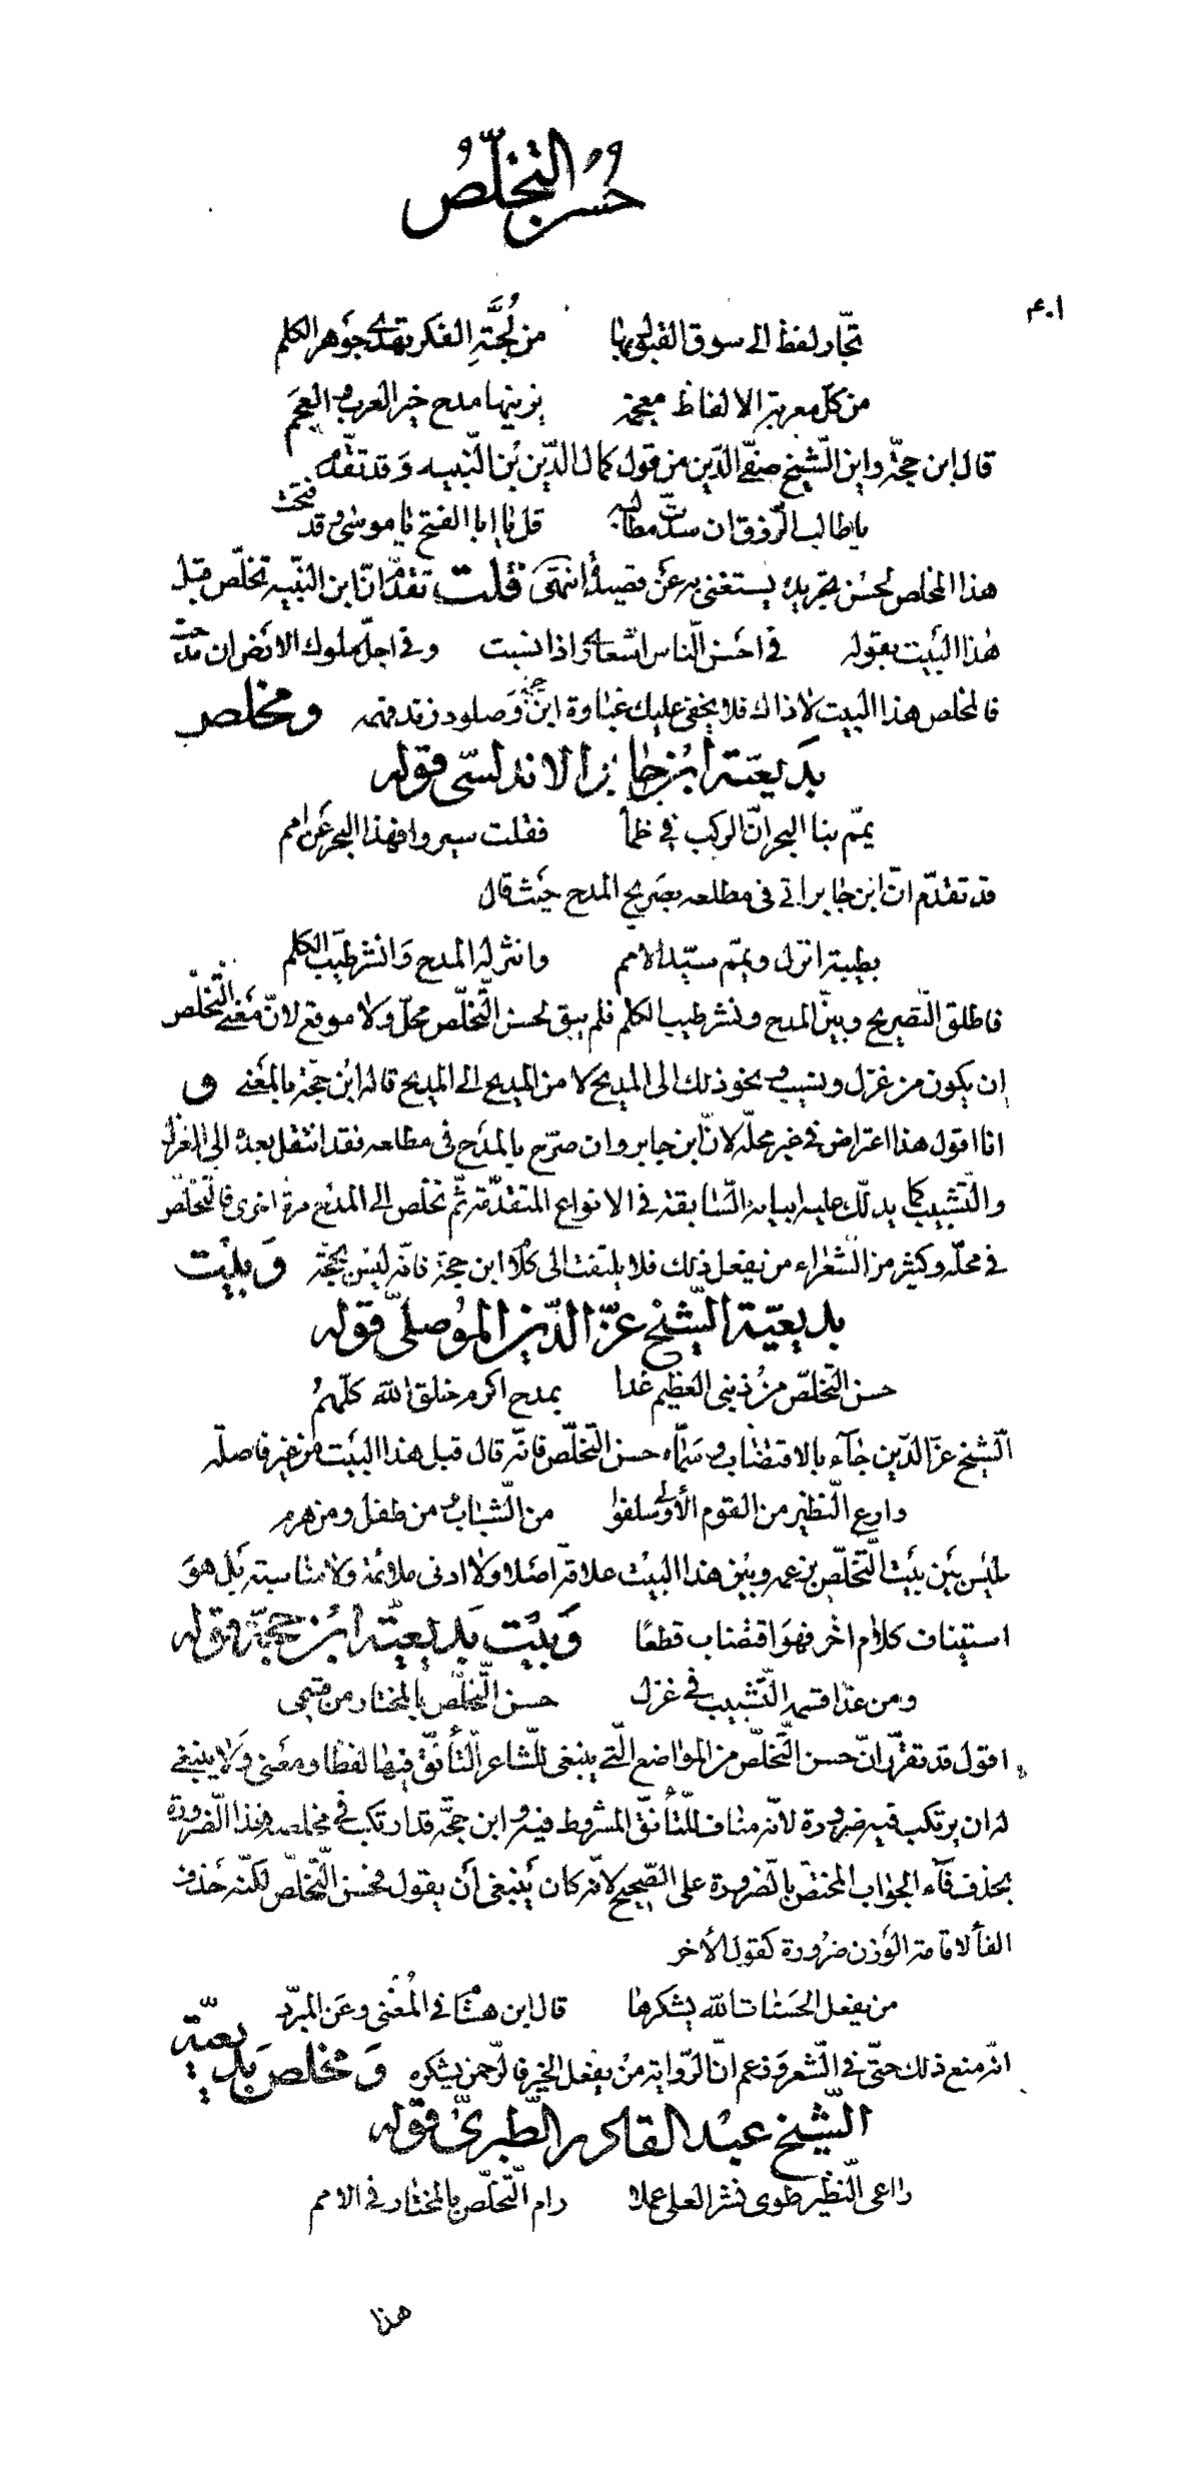 حُسن التخلّصُ
٤٠١
تجّار لفظ الى سوق القبول بها من لُجَّةِ الفكر تهدى جوهر الكلم
من كلّ معربة الالفاظ معجمة يزينها مدح خير العرب والعجم
قال ابن حجّة واين الشّيخ صفىّ الدّين من قول كمال الدّين بن النّبيه وقد تقدّم
يا طالب الرّزق ان سدّت مطالبه قل يا ابا الفتح يا موسى وقد فتحت
هذا المخلص لحسن تجريده يستغنى به عن قصيدة انتهى قُلت تقدّم انّ ابن النّبيه تخلّص قبل
هذا البيت بقوله فى احسن النّاس اشعارا اذا نسبت وفى اجلّ ملوك الارض ان مدحت
فالمخلص هذا البيت لا ذاك فلا يخفى عليك غباوة ابن حجّة وصلود زند فهمه ومخلص
بديعيّة ابن جابر الاندلسىّ قوله
يمّم بنا البحر انّ الركب فى ظمأ فقلت سيروا فهذا البحر عن امم
قد تقدّم انّ ابن جابر اتى فى مطلعه بصريح المدح حيث قال
بطيبة انزل ويمّم سيّد الامم وانثر له المدح وانشر طيّب الكلم
فاطلق التّصريح وبيّن المدح ونشر طيب الكلم فلم يبق لحسن التّخلّص محلّ ولا موقع لانّ معنى التّخلّص
ان يكون من غزل ونسيب ونحو ذلك الى المديح لا من المديح الى المديح قاله ابن حجّة بالمعنى و
انا اقول هذا اعتراض فى غير محلّه لانّ ابن جابر وان صرّح بالمدح فى مطلعه فقد انتقل بعده الى الغزل
والتّشبيب كما يدلّك عليه ابياته السّابقة فى الانواع المتقدّمة ثمّ تخلّص الى المدح مرة اخرى فالتّخلّص
فى محلّه وكثير من الشّعراء من يفعل ذلك فلا يلتفت الى كلام ابن حجّة فانّه ليس بحجّة وبيت
بديعيّة الشّيخ عزّ الدّين الموصلىّ قوله
حسن التّخلّص من ذنبى العظيم غدا بمدح اكرم خلق الله كلّهمُ
الشّيخ عزّ الدّين جاء بالاقتضاب وسمّاه حسن التّخلّص فانّه قال قبل هذا البيت من غير فاصلة
وارع النّظير من القوم الأولى سلفوا من الشّباب ومن طفل ومن هرم
فليس بين بيت التّخلّص بزعمه وبين هذا البيت علاقة اصلا ولا ادنى ملائمة ولا مناسبة بل هو
استيناف كلام اخر فهو اقتضاب قطعًا وبيت بديعيّة ابن حجّة قوله
ومن غدا قسمه التّشبيب فى غزل حسن التّخلّص بالمختار من قسمى
اقول قد تقرّر انّ حسن التّخلّص من المواضع الّتى ينبغى للشّاعر التّأنّق فيها لفظا ومعنى ولا ينبغى
له ان يرتكب فيه ضرورة لانّه مناف للتّأنّق المشروط فيه وابن حجّة قد ارتكب فى مخلصه هذا الضّرورة
بحذف فآء الجواب المختصّ بالضّرورة على الصّحيح لانّه كان ينبغى أن يقول فحسن التّخلّص لكنّه حذف
الفا لاقامة الوزن ضرورة كقول الأخر
من يفعل الحسنات الله يشكرها قال ابن هشام فى المُغنى وعن المبرّد
انّه منع ذلك حتّى فى الشّعر وزعم انّ الرّواية من يفعل الخير فالرّحمن يشكره ومخلص بديعيّة
الشّيخ عبد القادر الطّبرىّ قوله
راعى النّظير طوى نشر العلى عملا رام التّخلّص بالمختار فى الامم
هذا